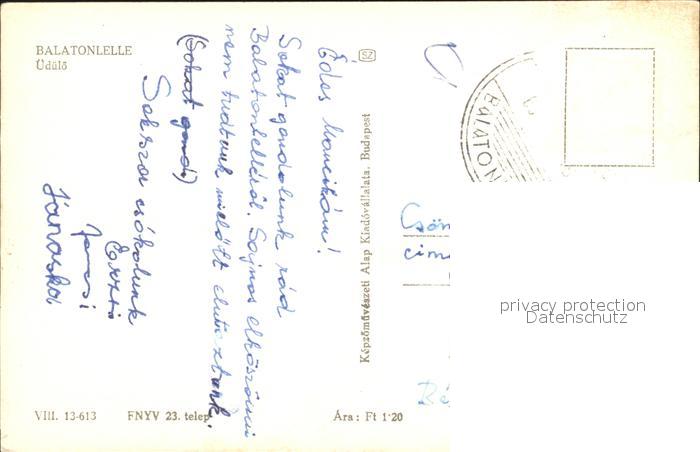 BALATONLELLE
Üdülő
Édes Mancikám!
Sokat gondolunk rád
Balatonlelléről. Sajnos elköszönni
nem tudtunk mielőtt elutaztunk.
(Sokat gond)
Sokszor csókolunk
Erzsi
Jancsi
Jánoska
VIII. 13-613 FNYV 23. telep.
Ára: Ft 1·20
Képzőművészeti Alap Kiadóvállalata, Budapest
SZ
BALATON
privacy protection
Datenschutz